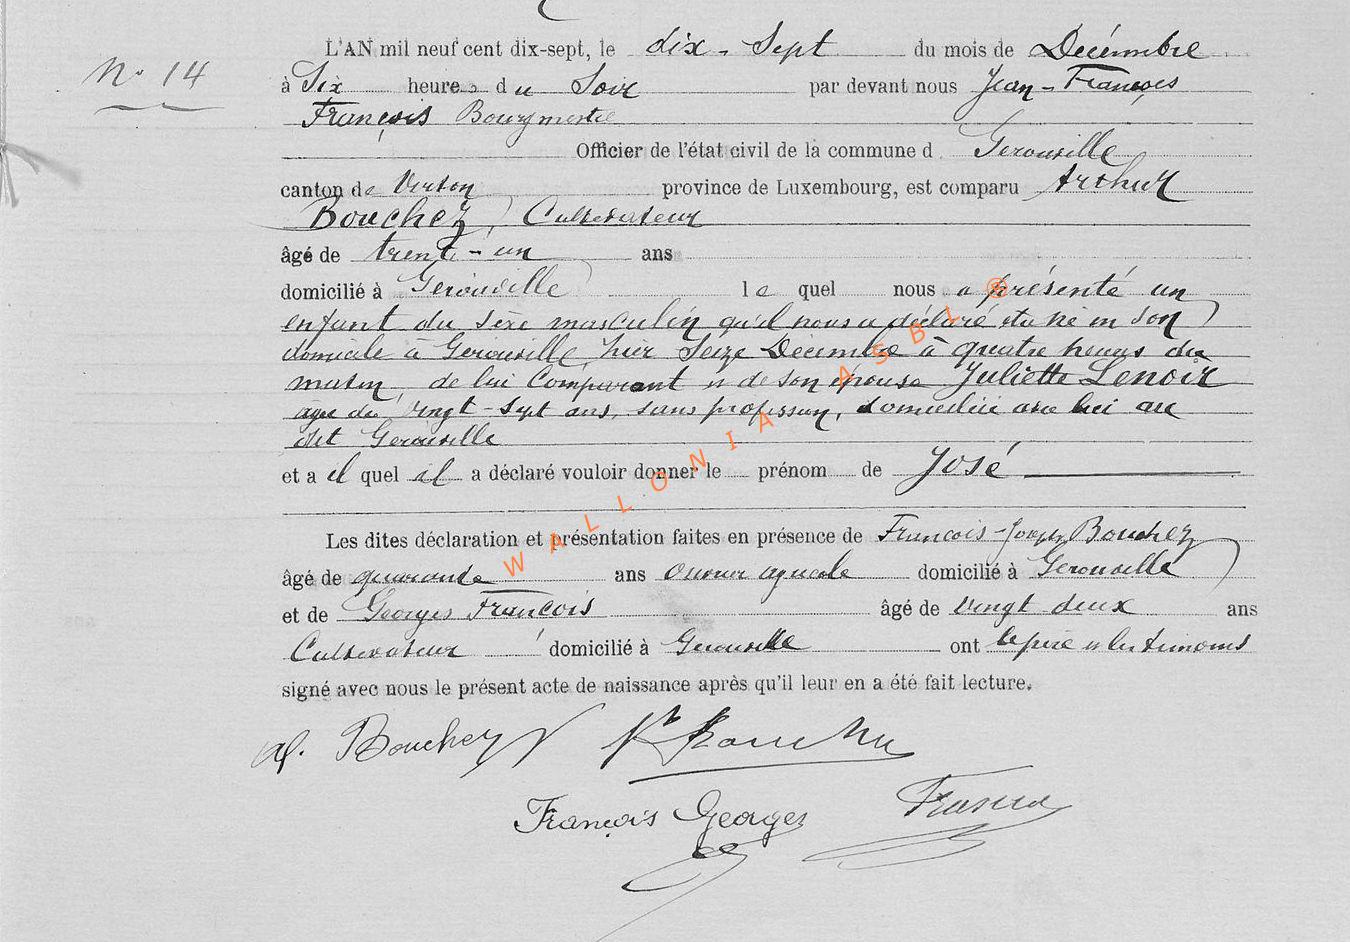 L'AN mil neuf cent dix-sept, le dix-sept du mois de Décembre
N° 14
à Six heures du Soir par devant nous Jean-François
François Bourgmestre
Officier de l'état civil de la commune d Gerouville
canton de Virton province de Luxembourg, est comparu Arthur
Bouchez, Cultivateur
âgé de trente-un ans
domicilié à Gerouville lequel nous a présenté un
enfant du sexe masculin qu'il nous a déclaré être né en son
domicile à Gerouville, hier Seize Décembre à quatre heures du
matin, de lui Comparant et de son épouse Juliette Lenoir
âgée de vingt-sept ans, sans profession, domiciliée avec lui au
dit Gerouville
et a il quel il a déclaré vouloir donner le prénom de José
Les dites déclaration et présentation faites en présence de François-Joseph Bouchez
âgé de quarante ans ouvrier agricole domicilié à Gerouville
et de Georges François âgé de vingt deux ans
Cultivateur domicilié à Gerouville ont le père et les témoins
signé avec nous le présent acte de naissance après qu'il leur en a été fait lecture.
A. Bouchez
François Georges
WALLONIA ASBL ®